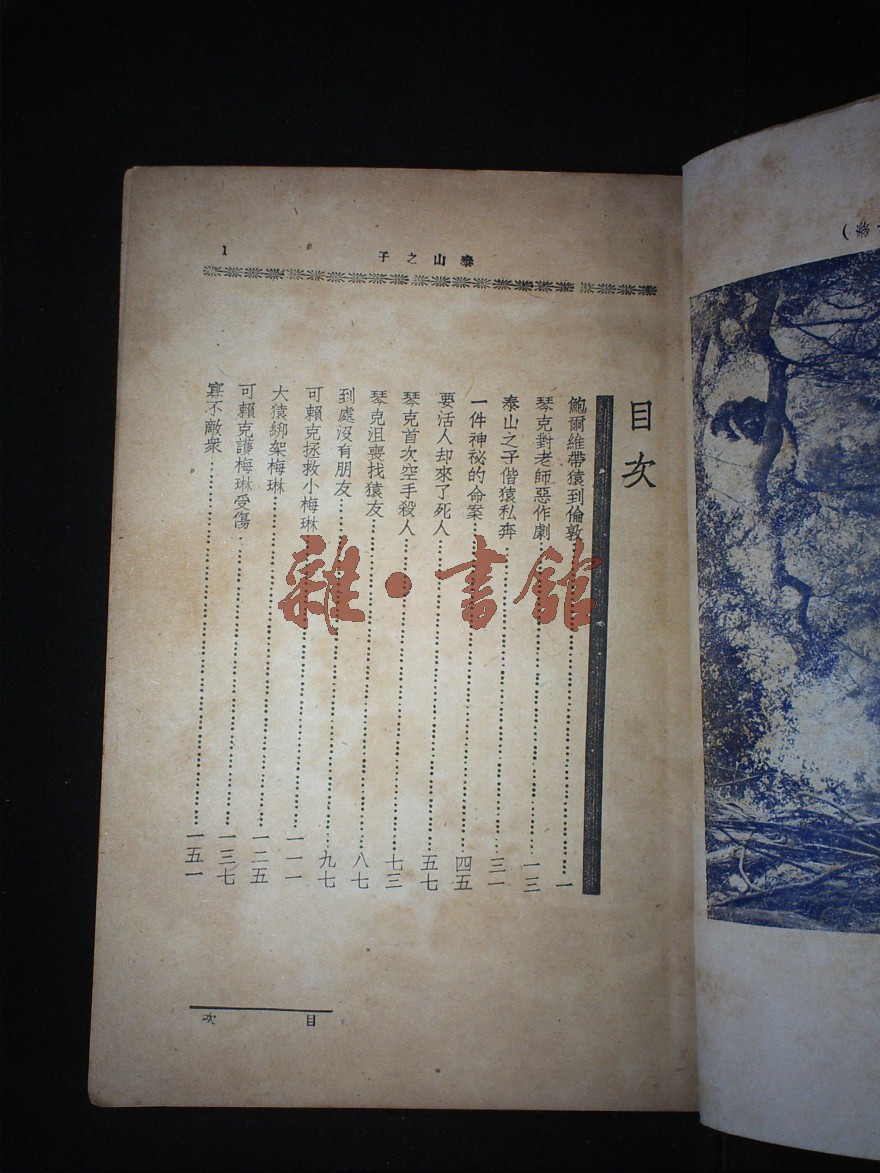 泰山之子
1
目次
鮑爾維帶猿到倫敦……一
琴克對老師惡作劇……一三
泰山之子偕猿私奔……三一
一件神祕的命案……四五
要活人却來了死人……五七
琴克首次空手殺人……七三
琴克沮喪找猿友……八七
到處沒有朋友……九七
可賴克拯救小梅琳……一一一
大猿綁架梅琳……一二五
可賴克護梅琳受傷……一三七
寡不敵衆……一五一
目次
雜·書館
(泰